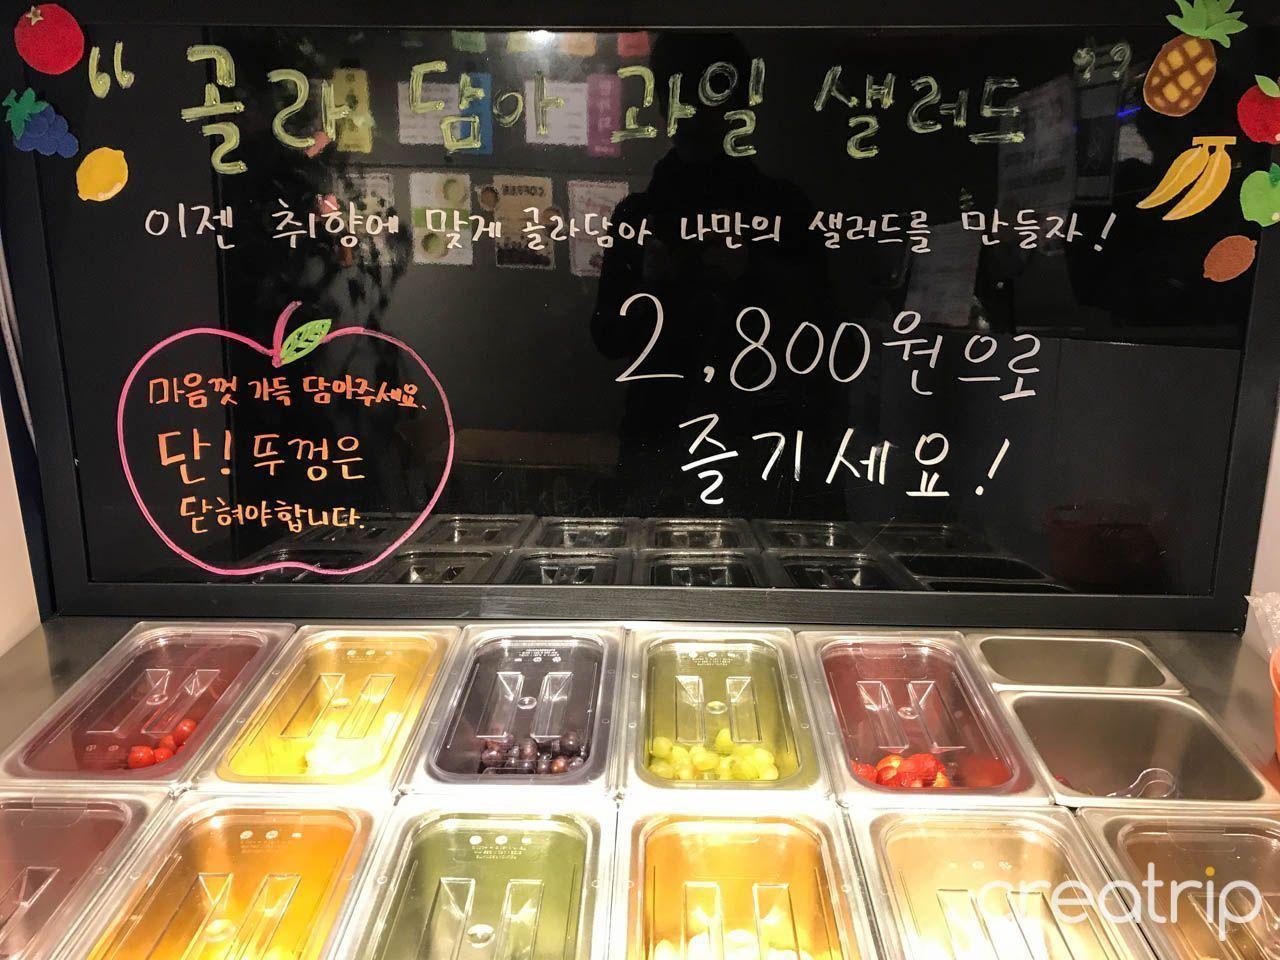 “ 골라 담아 과일 샐러드 ”
이젠 취향에 맞게 골라담아 나만의 샐러드를 만들자!
2,800원으로
즐기세요!
마음껏 가득 담아주세요.
단! 뚜껑은
닫혀야합니다.
creatrip